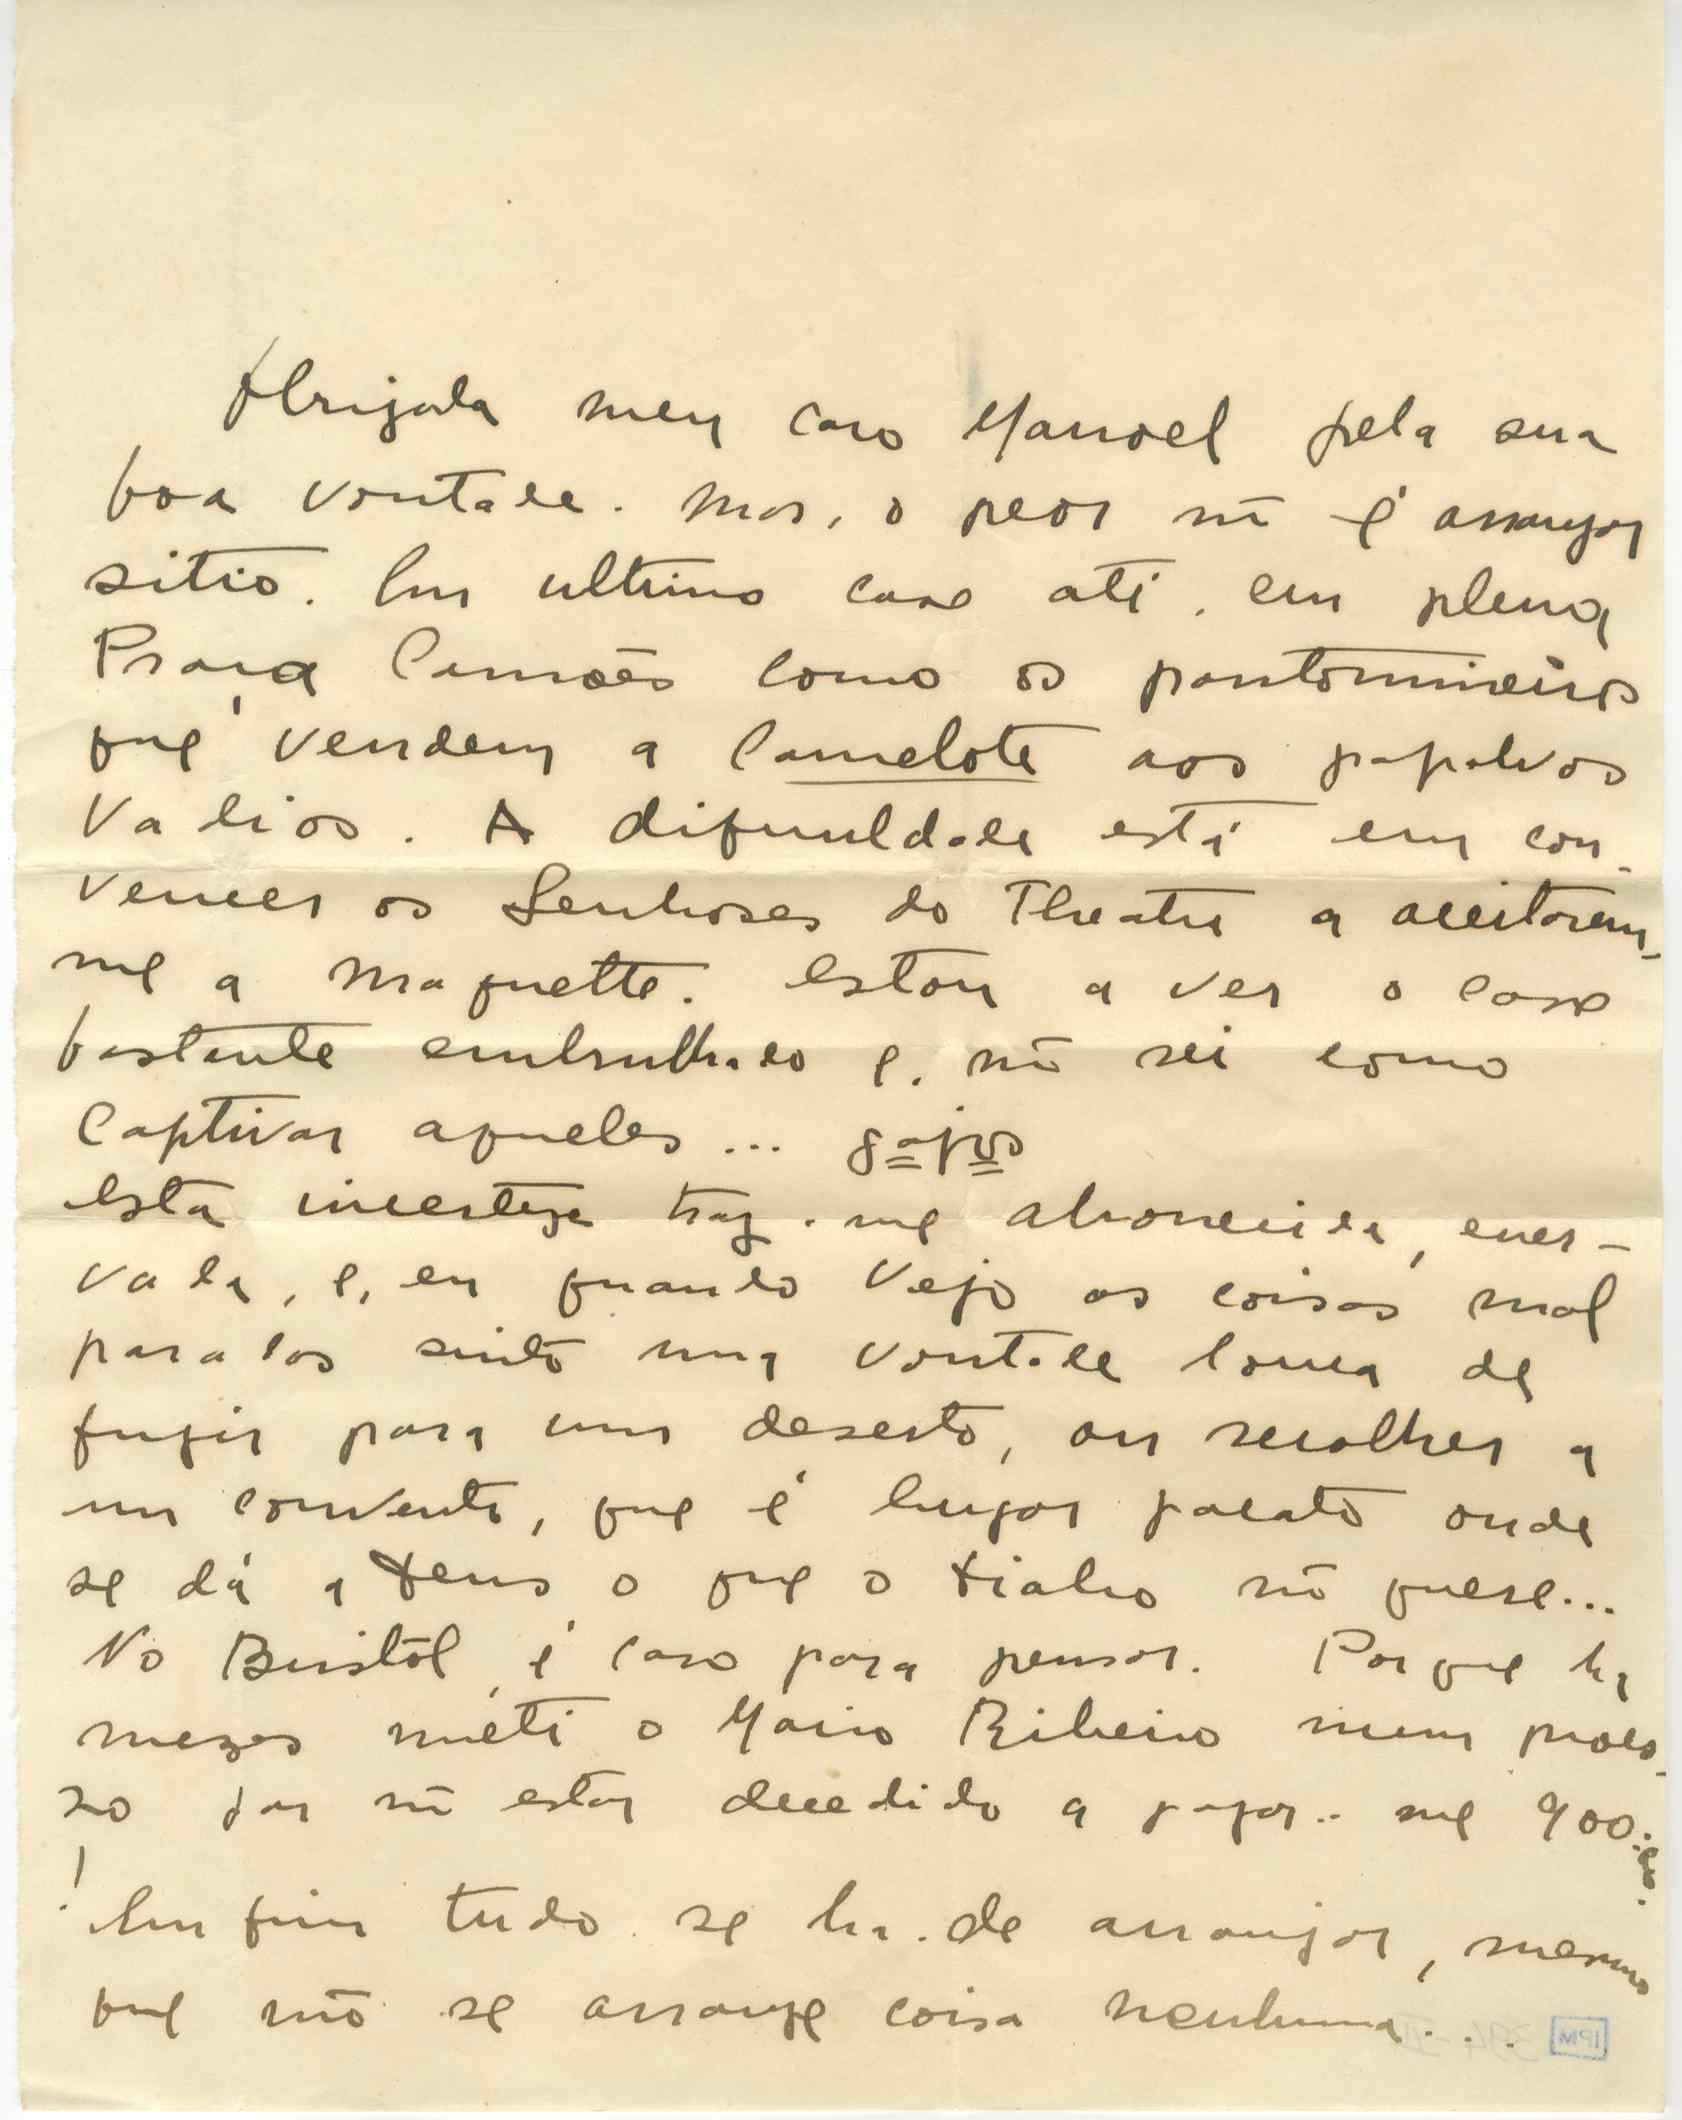 Obrigada meu caro Manoel pela sua
boa vontade. Mas, o peor nõ é arranjar
sitio. Em ultimo caso até, em plena
Praça Camões como os pantomineiros
que vendem a Camelote aos papalvos
vadios. A dificuldade está em con-
vencer os Senhores do Theatro a aceitarem-
me a maquette. Estou a ver o caso
bastante embrulhado e, nõ sei como
captivar aqueles... gajos
Esta incerteza traz-me aborrecida, ener-
vada, e, eu quando vejo as coisas mal
paradas sinto uma vontade louca de
fugir para um deserto, ou recolher a
um convento, que é lugar pacato onde
se dá a Deus o que o diabo nõ quere...
No Bristol, é caso para pensar. Porque ha
mezes meti o Mario Ribeiro num proces-
so por nõ estar decedido a pagar-me 900
!
Em fim tudo se ha-de arranjar, mesmo
que nõ se arranje coisa nenhuma...
394
IPM